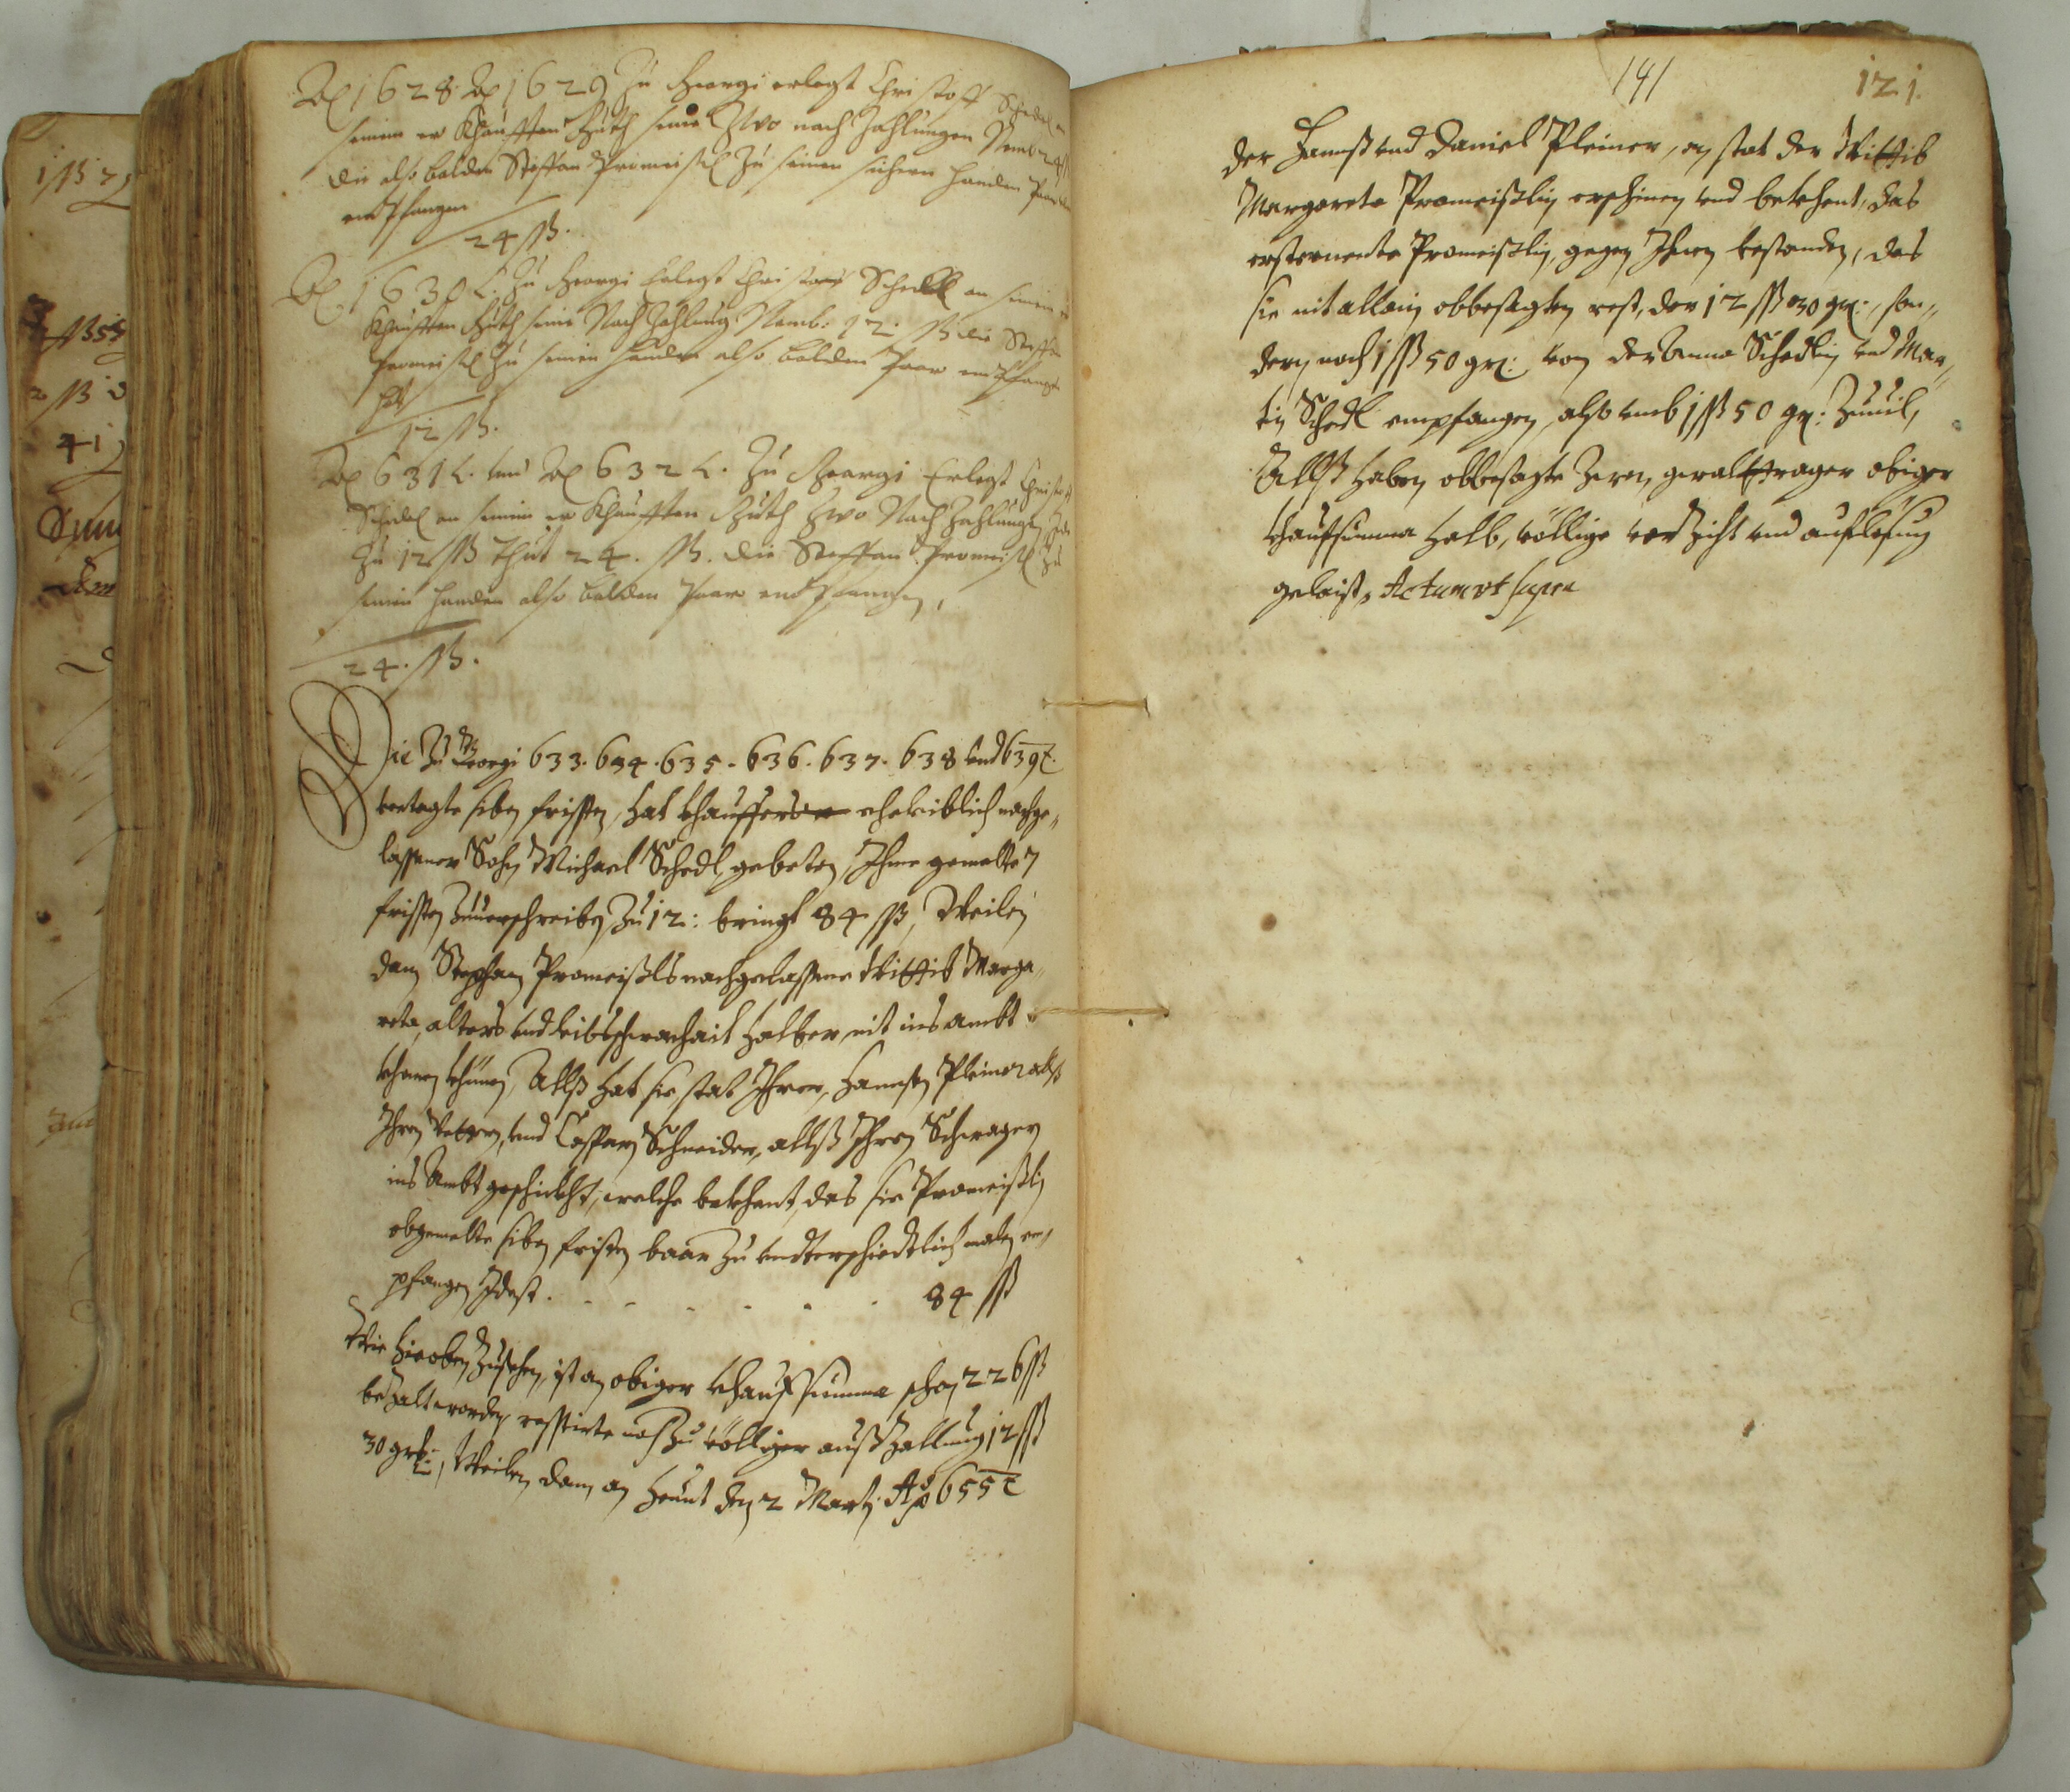 Ao 1628. Ao 1629 Zu Georgi erlegt Christoff Schedel an
seinem er Khaufften Guth seine Zwo nach Zahlungen Nemb 24 ßß
die also balden Steffan Promeisl Zu seinen sichern Handen Paar
entPfangen
24 ßß.
Ao 1630 L. Zu Georgi Erlegt Christoff Schedel an seinem er
Khaufften Guth seine Nach Zahlung Nemb: 12. ßß die Steffan
Promeisl Zu seinen Handen also balden Paar entPfangen
hat
12 ßß.
Ao 631 L. vnd Ao 632 L. Zu Georgi Erlegt Christoff
Schedel an seinem er Khaufften Guth Zwo Nach Zahlungen Jede
Zu 12 ßß Thut 24. ßß. die Steffan Promeisl Zu
seinen Handen also balden Paar entPfangen,
24. ßß.
Die Zu Georgi 633. 634. 635. 636. 637. 638 vnd 639t.
vertagte siben fristen, hat khauffers eheleiblich nachge„
lassener Sohn Michael Schedl gebeten, Ihme gemelte 7
fristen Zuuerschreiben Zu 12: bringt 84 ßß, Weilen
dann Stephan Promeißls nachgelassene Wittib Marga„
reta, alters vnd leibsschwachait halber, nit ins ambt
khomen khünen, Allß hat sie, stat Ihrer, Hannsen Pleiner allß
Ihren Vettern, vnd Casparn Schneider, allß Ihren Schwagern
ins Ambt geschickht, welche bekhent, das sie Promeißlin
obgemelte siben fristen baar Zu vndterschiedtlich malen em„
pfangen Idest. . . . . . . 84 ßß
Wie hieoben Zusehen, ist an obiger khauffsumma schon 226 ßß
beZalt worden, restierte noch Zu völliger außZallung 12 ßß
30 gr:, Weilen dann an heunt den 2 Martj Ao 655t
141 121.
der Hannß vnd Daniel Pleiner, an stat der Wittib
Margareta Promeißlin erschinen vnd bekhent, das
ersternente Promeißlin, gegen Ihnen bestanden, das
sie nit allain obbesagten rest, der 12 ßß 30 gr:, son„
dern noch 1 ßß 50 gr: von der Anna Schedlin vnd Mar„
tin Schedl empfangen, also vmb 1 ßß 50 gr: Zuuil,
Allß haben obbesagte Zwen, gewalttrager obiger
khauffsumma halb, völlige verZicht vnd aufflasung
gelaist, Actum vt supra